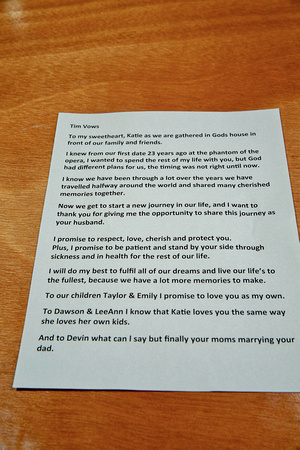 Tim Vows
To my sweetheart, Katie as we are gathered in Gods house in
front of our family and friends.
I knew from our first date 23 years ago at the phantom of the
opera, I wanted to spend the rest of my life with you, but God
had different plans for us, the timing was not right until now.
I know we have been through a lot over the years we have
travelled halfway around the world and shared many cherished
memories together.
Now we get to start a new journey in our life, and I want to
thank you for giving me the opportunity to share this journey as
your husband.
I promise to respect, love, cherish and protect you.
Plus, I promise to be patient and stand by your side through
sickness and in health for the rest of our life.
I will do my best to fulfil all of our dreams and live our life's to
the fullest, because we have a lot more memories to make.
To our children Taylor & Emily I promise to love you as my own.
To Dawson & LeeAnn I know that Katie loves you the same way
she loves her own kids.
And to Devin what can I say but finally your moms marrying your
dad.